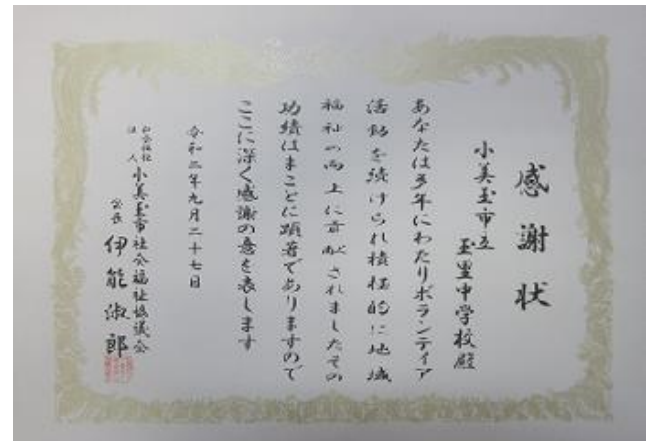 感謝状
小美玉市立
玉里中学校殿
あなたは多年にわたりボランティア
活動を続けられ積極的に地域
福祉の向上に貢献されましたその
功績はまことに顕著でありますので
ここに深く感謝の意を表します
令和二年九月二十七日
社会福祉
法人 小美玉市社会福祉協議会
会長 伊能淑郎